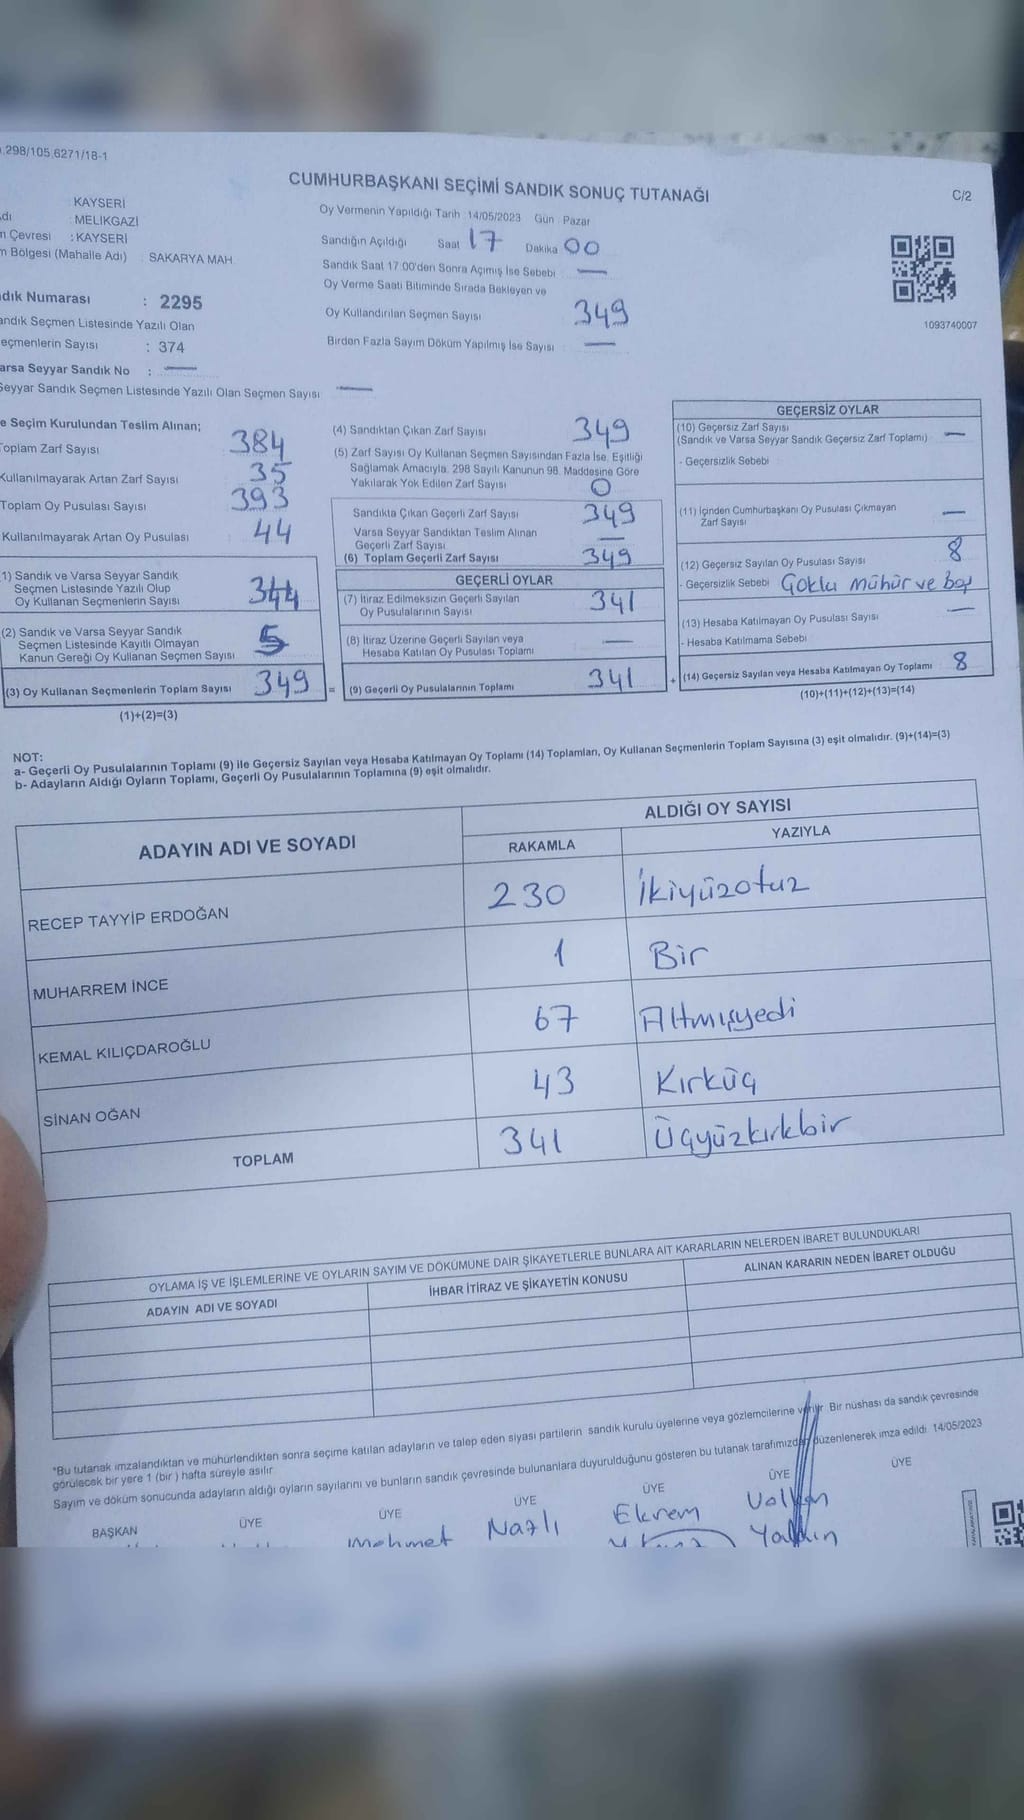 .298/105.6271/18-1
CUMHURBAŞKANI SEÇİMİ SANDIK SONUÇ TUTANAĞI
C/2
: KAYSERİ
dı : MELİKGAZİ
m Çevresi : KAYSERİ
m Bölgesi (Mahalle Adı) : SAKARYA MAH.
Oy Vermenin Yapıldığı Tarih :14/05/2023 Gün : Pazar
Sandığın Açıldığı Saat 17 Dakika 00
Sandık Saat 17:00'den Sonra Açımış İse Sebebi —
Oy Verme Saati Bitiminde Sırada Bekleyen ve
Oy Kullandırılan Seçmen Sayısı 349
Birden Fazla Sayım Döküm Yapılmış İse Sayısı —
1093740007
dık Numarası : 2295
andık Seçmen Listesinde Yazılı Olan
eçmenlerin Sayısı : 374
arsa Seyyar Sandık No : —
Seyyar Sandık Seçmen Listesinde Yazılı Olan Seçmen Sayısı —
e Seçim Kurulundan Teslim Alınan;
Toplam Zarf Sayısı 384
Kullanılmayarak Artan Zarf Sayısı 35
Toplam Oy Pusulası Sayısı 393
Kullanılmayarak Artan Oy Pusulası 44
1) Sandık ve Varsa Seyyar Sandık
Seçmen Listesinde Yazılı Olup
Oy Kullanan Seçmenlerin Sayısı 344
(2) Sandık ve Varsa Seyyar Sandık
Seçmen Listesinde Kayıtlı Olmayan
Kanun Gereği Oy Kullanan Seçmen Sayısı 5
(3) Oy Kullanan Seçmenlerin Toplam Sayısı 349 =
(1)+(2)=(3)
(4) Sandıktan Çıkan Zarf Sayısı 349
(5) Zarf Sayısı Oy Kullanan Seçmen Sayısından Fazla İse, Eşitliği
Sağlamak Amacıyla, 298 Sayılı Kanunun 98. Maddesine Göre
Yakılarak Yok Edilen Zarf Sayısı 0
Sandıkta Çıkan Geçerli Zarf Sayısı 349
Varsa Seyyar Sandıktan Teslim Alınan
Geçerli Zarf Sayısı —
(6) Toplam Geçerli Zarf Sayısı 349
GEÇERLİ OYLAR
(7) İtiraz Edilmeksizin Geçerli Sayılan
Oy Pusulalarının Sayısı 341
(8) İtiraz Üzerine Geçerli Sayılan veya
Hesaba Katılan Oy Pusulası Toplamı —
(9) Geçerli Oy Pusulalarının Toplamı 341 +
GEÇERSİZ OYLAR
(10) Geçersiz Zarf Sayısı
(Sandık ve Varsa Seyyar Sandık Geçersiz Zarf Toplamı) —
- Geçersizlik Sebebi
(11) İçinden Cumhurbaşkanı Oy Pusulası Çıkmayan
Zarf Sayısı —
(12) Geçersiz Sayılan Oy Pusulası Sayısı 8
- Geçersizlik Sebebi Çoklu mühür ve boş
(13) Hesaba Katılmayan Oy Pusulası Sayısı —
- Hesaba Katılmama Sebebi
(14) Geçersiz Sayılan veya Hesaba Katılmayan Oy Toplamı 8
(10)+(11)+(12)+(13)=(14)
NOT:
a- Geçerli Oy Pusulalarının Toplamı (9) ile Geçersiz Sayılan veya Hesaba Katılmayan Oy Toplamı (14) Toplamları, Oy Kullanan Seçmenlerin Toplam Sayısına (3) eşit olmalıdır. (9)+(14)=(3)
b- Adayların Aldığı Oyların Toplamı, Geçerli Oy Pusulalarının Toplamına (9) eşit olmalıdır.
ADAYIN ADI VE SOYADI
ALDIĞI OY SAYISI
RAKAMLA YAZIYLA
RECEP TAYYİP ERDOĞAN 230 İkiyüzotuz
MUHARREM İNCE 1 Bir
KEMAL KILIÇDAROĞLU 67 Altmışyedi
SİNAN OĞAN 43 Kırküç
TOPLAM 341 Üçyüzkırkbir
OYLAMA İŞ VE İŞLEMLERİNE VE OYLARIN SAYIM VE DÖKÜMÜNE DAİR ŞİKAYETLERLE BUNLARA AİT KARARLARIN NELERDEN İBARET BULUNDUKLARI
ADAYIN ADI VE SOYADI İHBAR İTİRAZ VE ŞİKAYETİN KONUSU ALINAN KARARIN NEDEN İBARET OLDUĞU
*Bu tutanak imzalandıktan ve mühürlendikten sonra seçime katılan adayların ve talep eden siyasi partilerin sandık kurulu üyelerine veya gözlemcilerine verilir. Bir nüshası da sandık çevresinde
görülecek bir yere 1 (bir ) hafta süreyle asılır.
Sayım ve döküm sonucunda adayların aldığı oyların sayılarını ve bunların sandık çevresinde bulunanlara duyurulduğunu gösteren bu tutanak tarafımızdan düzenlenerek imza edildi. 14/05/2023
BAŞKAN ÜYE ÜYE ÜYE ÜYE ÜYE ÜYE
Mehmet Nazlı Ekrem Volkan
Yalçın